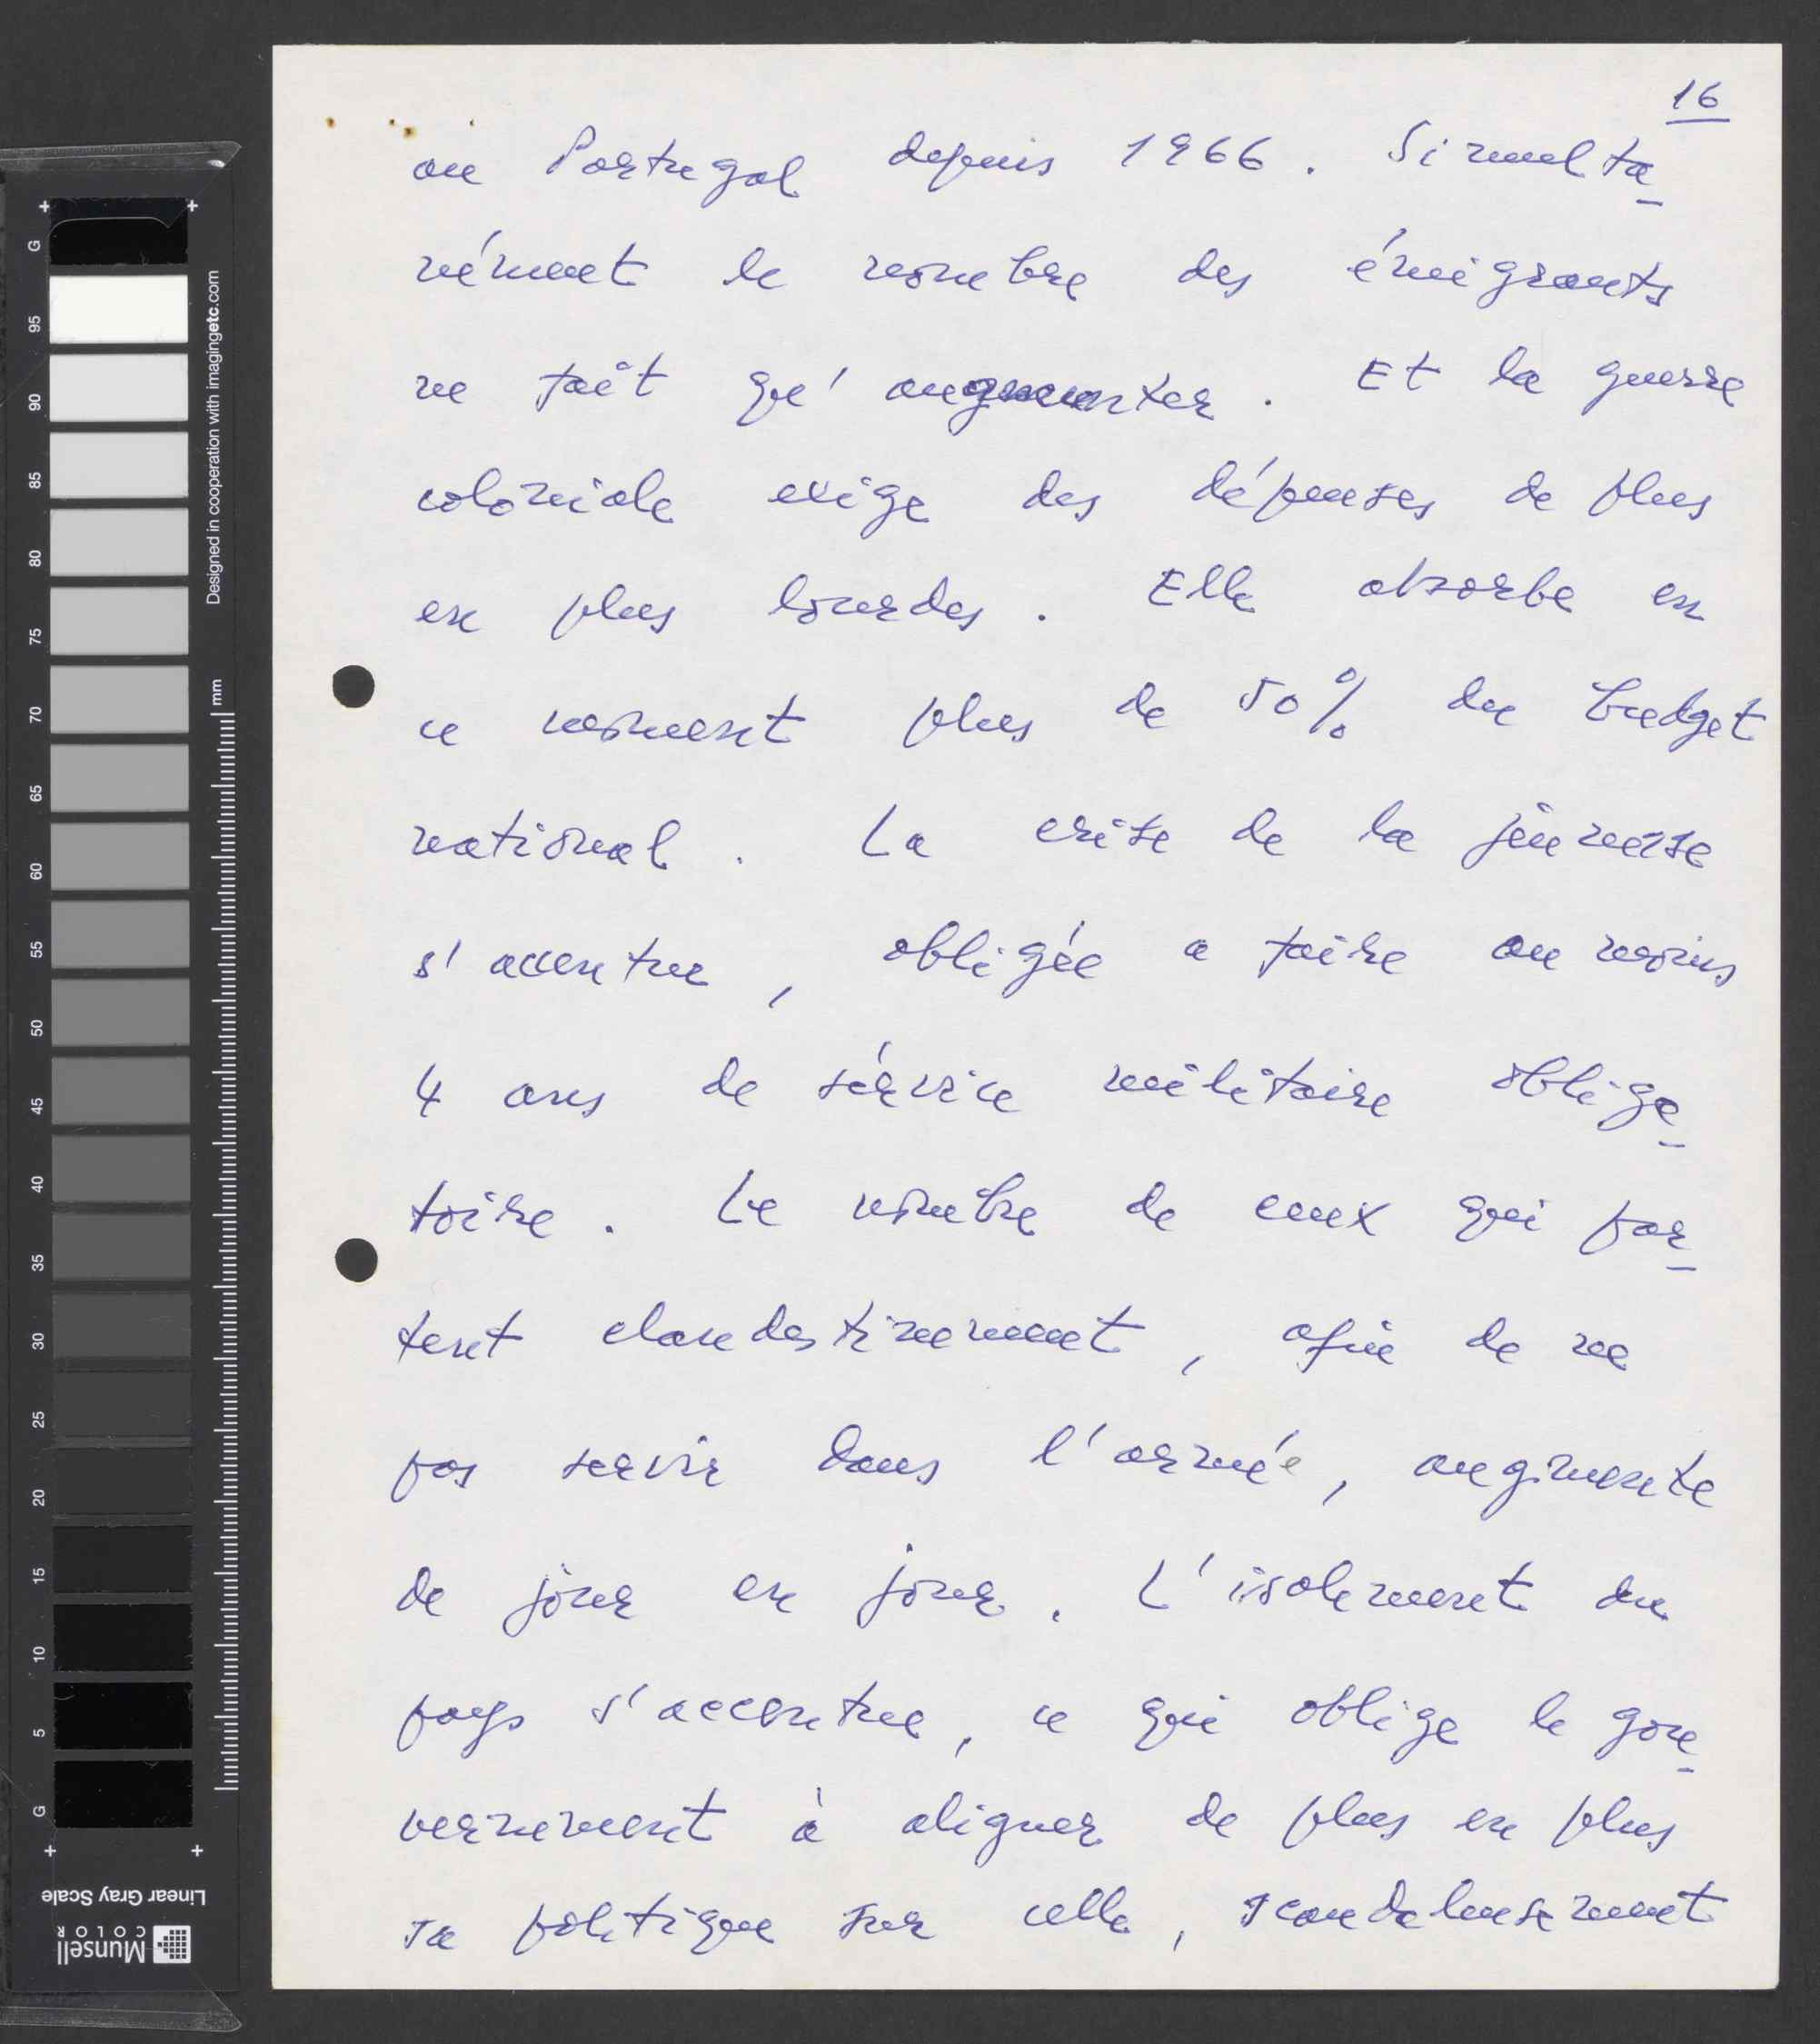 16
au Portugal depuis 1966. Simulta_
nément le nombre des émigrants
ne fait qu'augmenter. Et la guerre
coloniale exige des dépenses de plus
en plus lourdes. Elle absorbe en
ce moment plus de 50% du budget
national. La crise de la jeunesse
s'accentue, obligée a faire au moins
4 ans de sérvice militaire obliga_
toire. Le nombre de ceux qui par_
tent clandestinement, afin de ne
pas servir dans l'armée, augmente
de jour en jour. L'isolement du
pays s'accentue, ce qui oblige le gou_
vernement à aligner de plus en plus
sa politique sur celle, scandaleusement
G
95
90
85
80
75
70
65
60
55
50
45
40
35
30
25
20
15
10
5
G
Designed in cooperation with imagingetc.com
mm
Linear Gray Scale
Munsell
COLOR